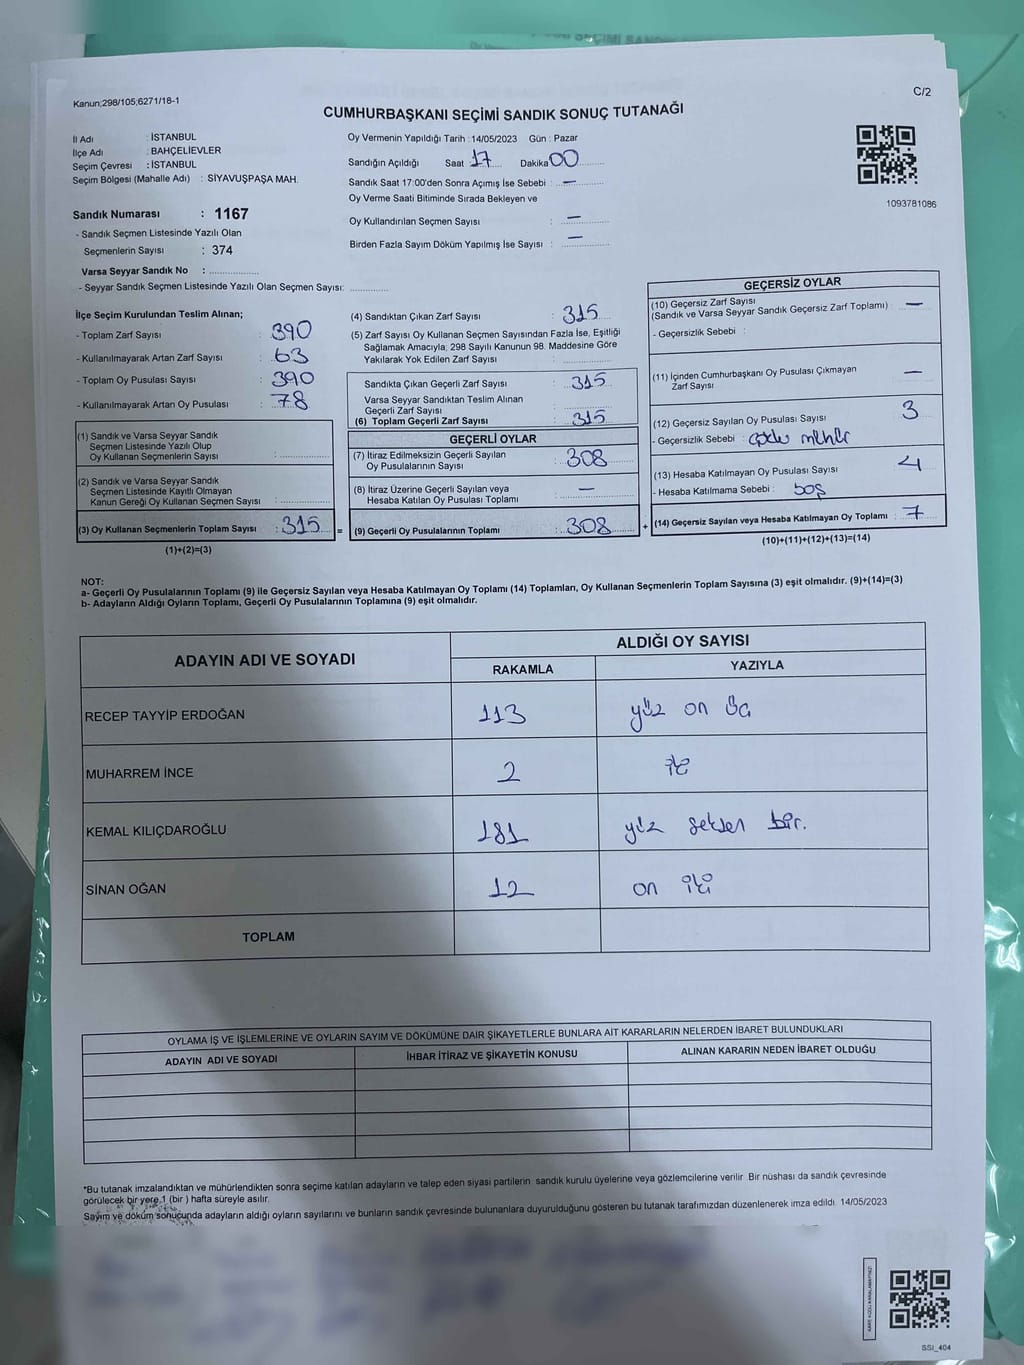 Kanun;298/105;6271/18-1
C/2
CUMHURBAŞKANI SEÇİMİ SANDIK SONUÇ TUTANAĞI
İl Adı : İSTANBUL
İlçe Adı : BAHÇELİEVLER
Seçim Çevresi : İSTANBUL
Seçim Bölgesi (Mahalle Adı) : SİYAVUŞPAŞA MAH.
Sandık Numarası : 1167
- Sandık Seçmen Listesinde Yazılı Olan
Seçmenlerin Sayısı : 374
Varsa Seyyar Sandık No :
- Seyyar Sandık Seçmen Listesinde Yazılı Olan Seçmen Sayısı:
Oy Vermenin Yapıldığı Tarih : 14/05/2023 Gün : Pazar
Sandığın Açıldığı Saat 17 Dakika 00
Sandık Saat 17:00'den Sonra Açımış İse Sebebi : —
Oy Verme Saati Bitiminde Sırada Bekleyen ve
Oy Kullandırılan Seçmen Sayısı : —
Birden Fazla Sayım Döküm Yapılmış İse Sayısı : —
1093781086
İlçe Seçim Kurulundan Teslim Alınan;
- Toplam Zarf Sayısı : 390
- Kullanılmayarak Artan Zarf Sayısı : 63
- Toplam Oy Pusulası Sayısı : 390
- Kullanılmayarak Artan Oy Pusulası : 78
(1) Sandık ve Varsa Seyyar Sandık
Seçmen Listesinde Yazılı Olup
Oy Kullanan Seçmenlerin Sayısı :
(2) Sandık ve Varsa Seyyar Sandık
Seçmen Listesinde Kayıtlı Olmayan
Kanun Gereği Oy Kullanan Seçmen Sayısı :
(3) Oy Kullanan Seçmenlerin Toplam Sayısı : 315 =
(1)+(2)=(3)
(4) Sandıktan Çıkan Zarf Sayısı : 315
(5) Zarf Sayısı Oy Kullanan Seçmen Sayısından Fazla İse, Eşitliği
Sağlamak Amacıyla; 298 Sayılı Kanunun 98. Maddesine Göre
Yakılarak Yok Edilen Zarf Sayısı :
Sandıkta Çıkan Geçerli Zarf Sayısı : 315
Varsa Seyyar Sandıktan Teslim Alınan
Geçerli Zarf Sayısı :
(6) Toplam Geçerli Zarf Sayısı : 315
GEÇERLİ OYLAR
(7) İtiraz Edilmeksizin Geçerli Sayılan
Oy Pusulalarının Sayısı : 308
(8) İtiraz Üzerine Geçerli Sayılan veya
Hesaba Katılan Oy Pusulası Toplamı : —
(9) Geçerli Oy Pusulalarının Toplamı : 308 +
GEÇERSİZ OYLAR
(10) Geçersiz Zarf Sayısı
(Sandık ve Varsa Seyyar Sandık Geçersiz Zarf Toplamı) : —
- Geçersizlik Sebebi :
(11) İçinden Cumhurbaşkanı Oy Pusulası Çıkmayan
Zarf Sayısı —
(12) Geçersiz Sayılan Oy Pusulası Sayısı : 3
- Geçersizlik Sebebi : mühür
(13) Hesaba Katılmayan Oy Pusulası Sayısı : 4
- Hesaba Katılmama Sebebi : boş
(14) Geçersiz Sayılan veya Hesaba Katılmayan Oy Toplamı : 7
(10)+(11)+(12)+(13)=(14)
NOT:
a- Geçerli Oy Pusulalarının Toplamı (9) ile Geçersiz Sayılan veya Hesaba Katılmayan Oy Toplamı (14) Toplamları, Oy Kullanan Seçmenlerin Toplam Sayısına (3) eşit olmalıdır. (9)+(14)=(3)
b- Adayların Aldığı Oyların Toplamı, Geçerli Oy Pusulalarının Toplamına (9) eşit olmalıdır.
ADAYIN ADI VE SOYADI
ALDIĞI OY SAYISI
RAKAMLA YAZIYLA
RECEP TAYYİP ERDOĞAN 113 yüz on üç
MUHARREM İNCE 2 iki
KEMAL KILIÇDAROĞLU 181 yüz seksen bir.
SİNAN OĞAN 12 on iki
TOPLAM
OYLAMA İŞ VE İŞLEMLERİNE VE OYLARIN SAYIM VE DÖKÜMÜNE DAİR ŞİKAYETLERLE BUNLARA AİT KARARLARIN NELERDEN İBARET BULUNDUKLARI
ADAYIN ADI VE SOYADI İHBAR İTİRAZ VE ŞİKAYETİN KONUSU ALINAN KARARIN NEDEN İBARET OLDUĞU
*Bu tutanak imzalandıktan ve mühürlendikten sonra seçime katılan adayların ve talep eden siyasi partilerin sandık kurulu üyelerine veya gözlemcilerine verilir. Bir nüshası da sandık çevresinde
görülecek bir yere 1 (bir ) hafta süreyle asılır.
Sayım ve döküm sonucunda adayların aldığı oyların sayılarını ve bunların sandık çevresinde bulunanlara duyurulduğunu gösteren bu tutanak tarafımızdan düzenlenerek imza edildi. 14/05/2023
SSI_404